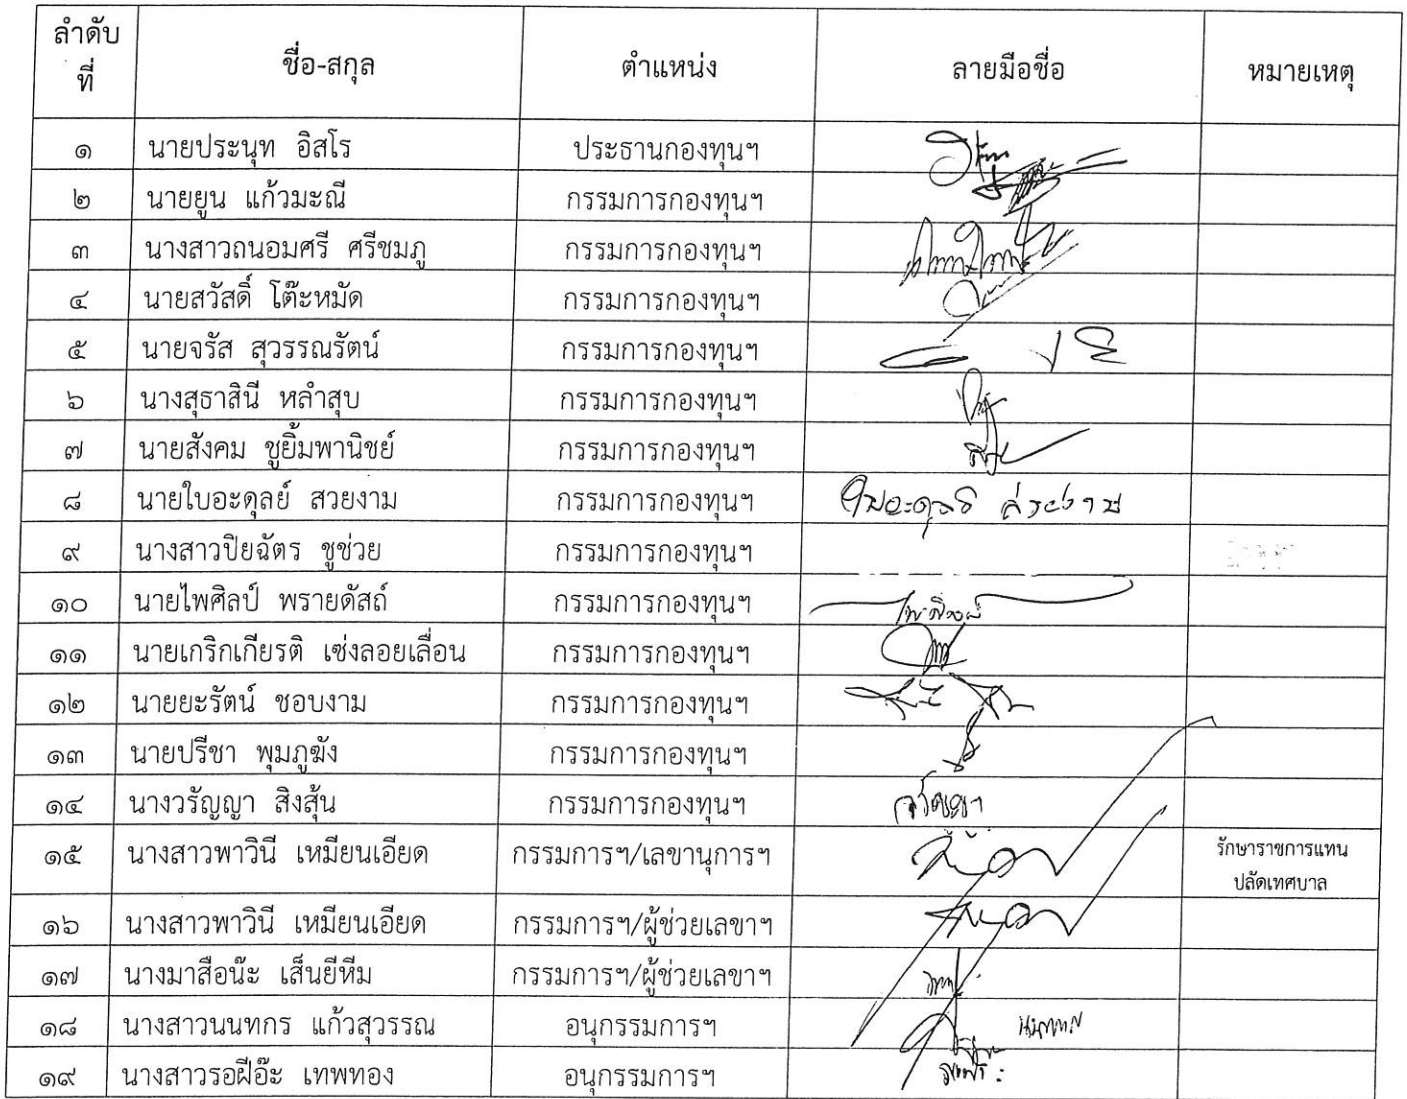 ลำดับที่ ชื่อ-สกุล ตำแหน่ง ลายมือชื่อ หมายเหตุ
๑ นายประนุท อิสโร ประธานกองทุนฯ
๒ นายยูน แก้วมะณี กรรมการกองทุนฯ
๓ นางสาวถนอมศรี ศรีชมภู กรรมการกองทุนฯ
๔ นายสวัสดิ์ โต๊ะหมัด กรรมการกองทุนฯ
๕ นายจรัส สุวรรณรัตน์ กรรมการกองทุนฯ
๖ นางสุธาสินี หลำสุบ กรรมการกองทุนฯ
๗ นายสังคม ชูยิ้มพานิชย์ กรรมการกองทุนฯ
๘ นายใบอะดุลย์ สวยงาม กรรมการกองทุนฯ ใบอะดุลย์ สวยงาม
๙ นางสาวปิยฉัตร ชูช่วย กรรมการกองทุนฯ
๑๐ นายไพศิลป์ พรายดัสถ์ กรรมการกองทุนฯ ไพศิลป์
๑๑ นายเกริกเกียรติ เซ่งลอยเลื่อน กรรมการกองทุนฯ
๑๒ นายยะรัตน์ ชอบงาม กรรมการกองทุนฯ
๑๓ นายปรีชา พุมภูฆัง กรรมการกองทุนฯ
๑๔ นางวรัญญา สิงสุ้น กรรมการกองทุนฯ วรัญญา
๑๕ นางสาวพาวินี เหมียนเอียด กรรมการฯ/เลขานุการฯ รักษาราชการแทน
ปลัดเทศบาล
๑๖ นางสาวพาวินี เหมียนเอียด กรรมการฯ/ผู้ช่วยเลขาฯ
๑๗ นางมาสือน๊ะ เส็นยีหีม กรรมการฯ/ผู้ช่วยเลขาฯ
๑๘ นางสาวนนทกร แก้วสุวรรณ อนุกรรมการฯ นนทกร
๑๙ นางสาวรอฝีอ๊ะ เทพทอง อนุกรรมการฯ